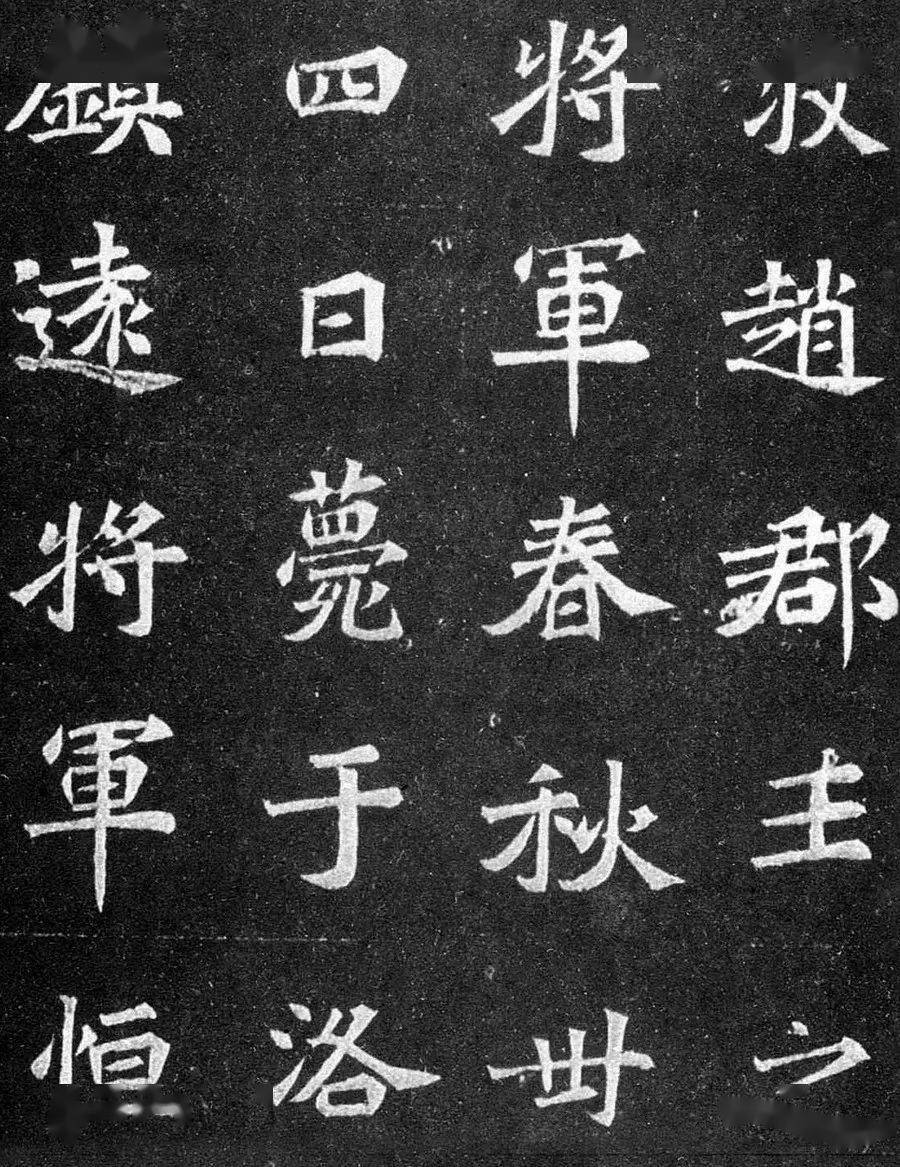 趙郡王之
將軍春秋卌
四日薨于洛
鎮遠將軍恒